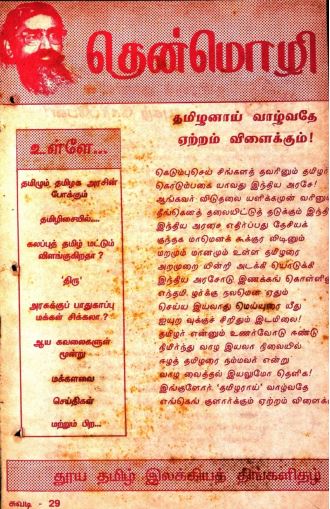 தென்மொழி
தமிழனாய் வாழ்வதே
ஏற்றம் விளைக்கும்!
உள்ளே...
தமிழும் தமிழக அரசின்
போக்கும்
தமிழிசையில்....
கலப்புத் தமிழ் மட்டும்
விளங்குகிறதா ?
'திரு'
அரசுக்குப் பாதுகாப்பு
மக்கள் சிக்கலா ?
ஆய கவலைகளுள்
மூன்று
மக்களவை
செய்திகள்
மற்றும் பிற...
கெடும்புசெய் சிங்களத் தவரினும் தமிழர்
கொடும்பகை யாவது இந்திய அரசே!
ஆங்கவர் விடுதலை யளிக்கமுன் வரினும்
தீங்கெனத் தலையிட்டுத் தடுக்கும் இந்தி
இந்திய அரசை எதிர்ப்பது தேசியக்
குந்தக மாமெனக் கூக்குர லிடினும்
மறமும் மானமும் உள்ள தமிழரை
அறமுறை யின்றி அடக்கி யொடுக்கி
இந்திய அரசோடு இணக்கங் கொள்ளினு
எந்தமி ழர்க்கு நலமென ஏதும்
செய்ய இயலாது மெய்யுரை யீது
ஐயுற வுக்குச் சிறிதும் இடமிலை!
தமிழர் என்னும் உணர்வோடு ஈண்டு
நிமிர்ந்து வாழ இயலா நிலையில்
ஈழத் தமிழரை நம்மவர் என்று
வாழ வைத்தல் இயலுமோ தெளிக!
இங்குளோர் 'தமிழராய்' வாழ்வதே
எங்கெங் குளார்க்கும் ஏற்றம் விளைக்
தூய தமிழ் இலக்கியத் திங்களிதழ்
சுவடி - 29